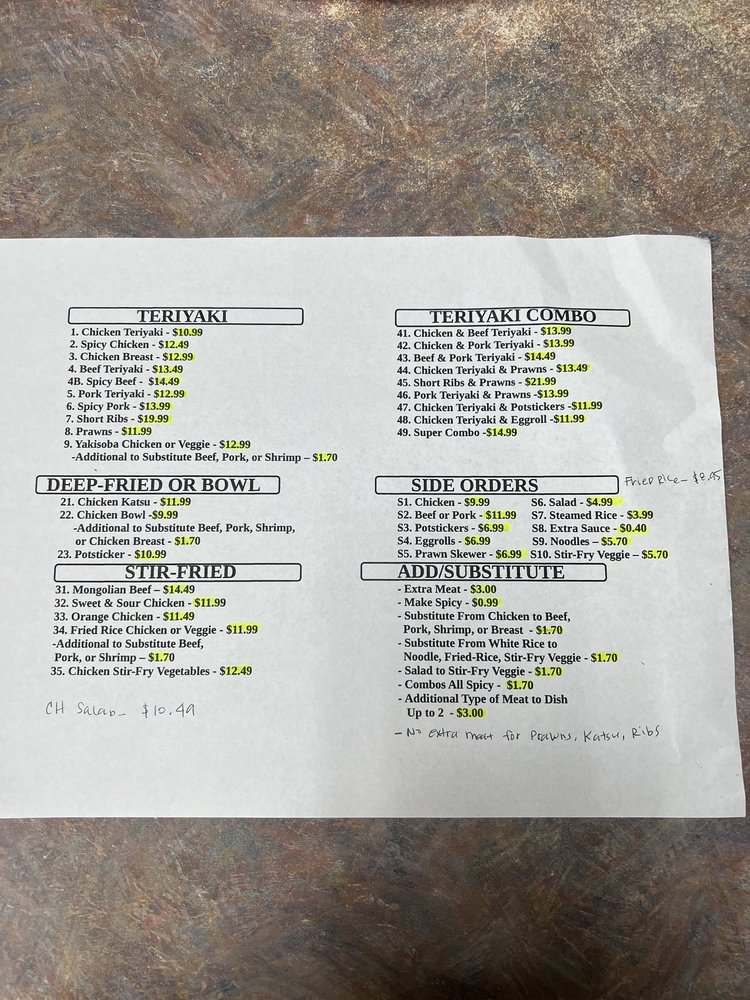 TERIYAKI
1. Chicken Teriyaki - $10.99
2. Spicy Chicken - $12.49
3. Chicken Breast - $12.99
4. Beef Teriyaki - $13.49
4B. Spicy Beef - $14.49
5. Pork Teriyaki - $12.99
6. Spicy Pork - $13.99
7. Short Ribs - $19.99
8. Prawns - $11.99
9. Yakisoba Chicken or Veggie - $12.99
-Additional to Substitute Beef, Pork, or Shrimp – $1.70
DEEP-FRIED OR BOWL
21. Chicken Katsu - $11.99
22. Chicken Bowl -$9.99
-Additional to Substitute Beef, Pork, Shrimp,
or Chicken Breast - $1.70
23. Potsticker - $10.99
STIR-FRIED
31. Mongolian Beef – $14.49
32. Sweet & Sour Chicken - $11.99
33. Orange Chicken - $11.49
34. Fried Rice Chicken or Veggie - $11.99
-Additional to Substitute Beef,
Pork, or Shrimp – $1.70
35. Chicken Stir-Fry Vegetables - $12.49
CH Salad - $10.49
TERIYAKI COMBO
41. Chicken & Beef Teriyaki - $13.99
42. Chicken & Pork Teriyaki - $13.99
43. Beef & Pork Teriyaki - $14.49
44. Chicken Teriyaki & Prawns - $13.49
45. Short Ribs & Prawns - $21.99
46. Pork Teriyaki & Prawns -$13.99
47. Chicken Teriyaki & Potstickers -$11.99
48. Chicken Teriyaki & Eggroll -$11.99
49. Super Combo -$14.99
SIDE ORDERS
Fried Rice -
S1. Chicken - $9.99 S6. Salad - $4.99
S2. Beef or Pork - $11.99 S7. Steamed Rice - $3.99
S3. Potstickers - $6.99 S8. Extra Sauce - $0.40
S4. Eggrolls - $6.99 S9. Noodles – $5.70
S5. Prawn Skewer - $6.99 S10. Stir-Fry Veggie – $5.70
ADD/SUBSTITUTE
- Extra Meat - $3.00
- Make Spicy - $0.99
- Substitute From Chicken to Beef,
Pork, Shrimp, or Breast - $1.70
- Substitute From White Rice to
Noodle, Fried-Rice, Stir-Fry Veggie - $1.70
- Salad to Stir-Fry Veggie - $1.70
- Combos All Spicy - $1.70
- Additional Type of Meat to Dish
Up to 2 - $3.00
- No extra meat for Prawns, Katsu, Ribs